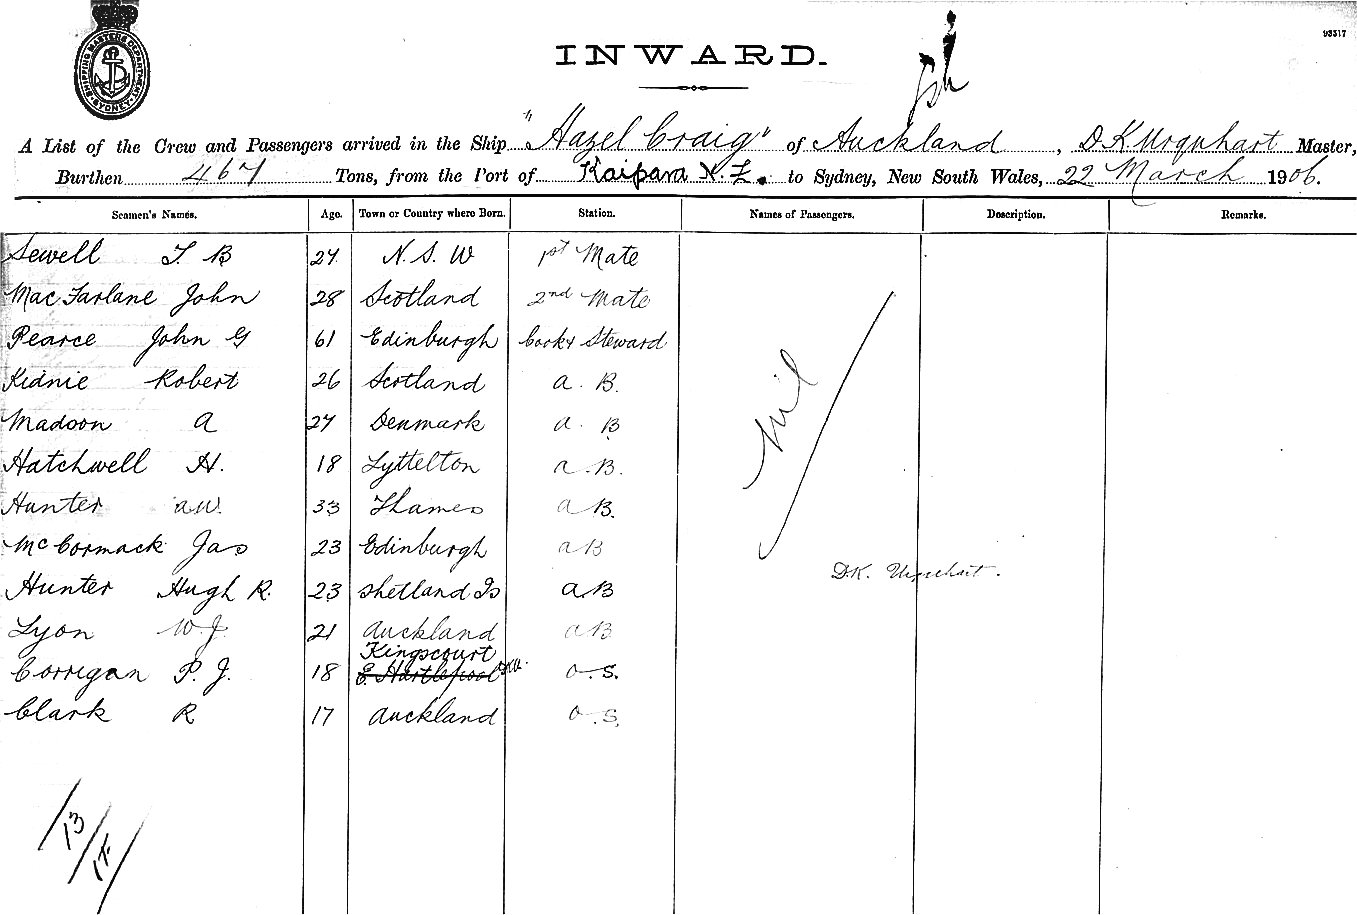 SHIPPING MASTER'S DEPARTMENT SYDNEY
93517
INWARD.
A List of the Crew and Passengers arrived in the Ship "Hazel Craig" of Auckland, D K Urquhart Master,
Burthen 467 Tons, from the Port of Kaipara N.Z. to Sydney, New South Wales, 22 March 1906.
Seamen's Names. Age. Town or Country where Born. Station. Names of Passengers. Description. Remarks.
Sewell T B 27 N. S. W 1st Mate
MacFarlane John 28 Scotland 2nd Mate
Pearce John G 61 Edinburgh Cook & Steward
Kidnie Robert 26 Scotland a. B.
Madson A 27 Denmark a. B
Hatchwell H. 18 Lyttelton a. B.
Hunter a W. 33 Thames a B.
McCormack Jas 23 Edinburgh a B
Hunter Hugh R. 23 Shetland Is a B
Lyon W. J. 21 Auckland a B
Kingscourt
Corrigan P. J. 18 E. Hartlepool D.K.U. O. S.
Clark R 17 Auckland O. S.
Nil
D.K. Urquhart.
13